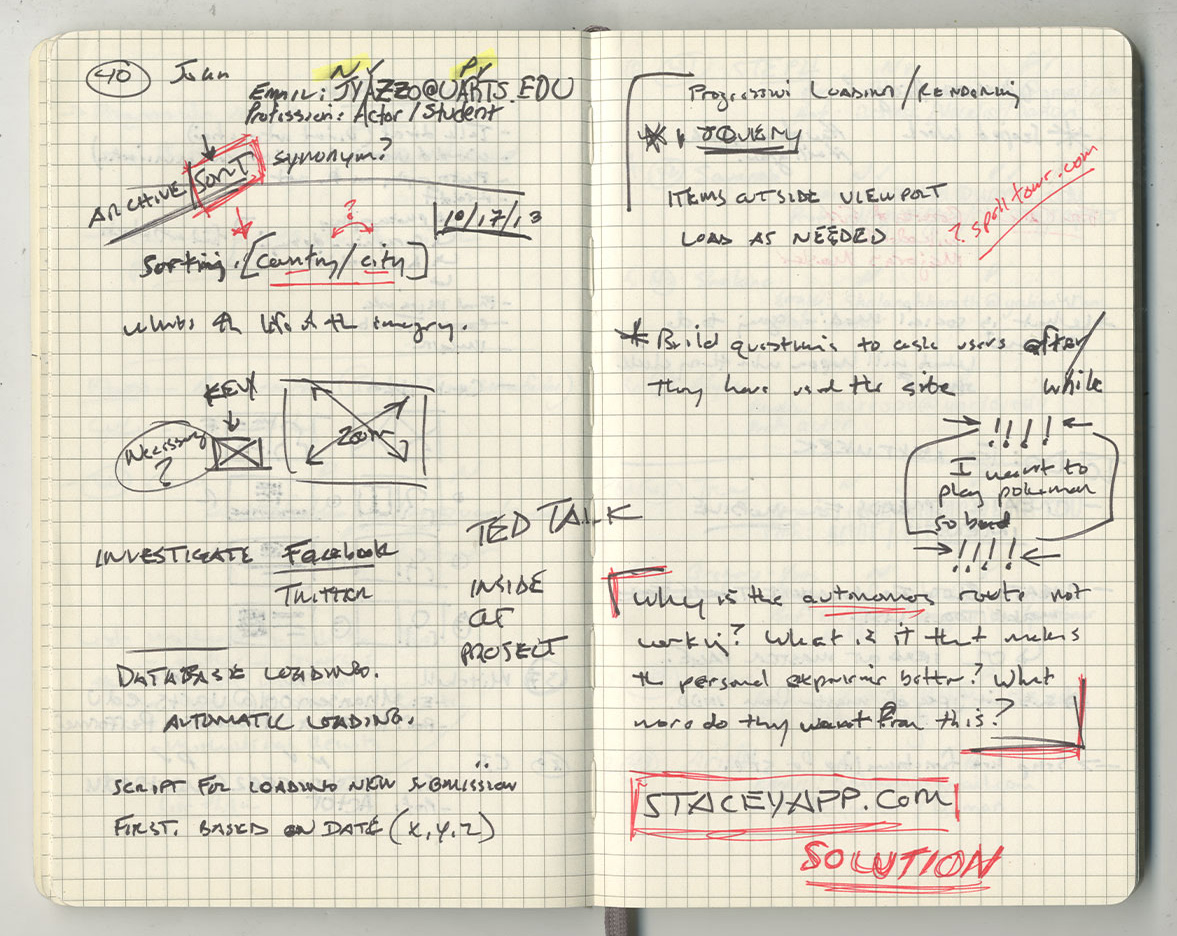 40 John
NY PY
Email: JYAZZO@UARTS.EDU
Profession: Actor/Student
ARCHIVE/SORT synonym?
10/17/13
?
Sorting. [country/city]
whats the life of the imagery.
KEY
Necessary
?
Zoom
INVESTIGATE Facebook
TWITTER
TED TALK
INSIDE
OF
PROJECT
DATABASE LOADING.
AUTOMATIC LOADING.
SCRIPT FOR LOADING NEW SUBMISSION
FIRST. BASED ON DATE (X,Y,Z)
Progressive LOADING/RENDERING
* JQUERY
ITEMS OUTSIDE VIEWPORT
LOAD AS NEEDED
?. spolltour.com
* Build questions to ask users after/
they have used the site while
!!!!
I want to
play pokemon
so bad
!!!!
Why is the autonomos route not
working? What is it that makes
the personal experience better? What
more do they want from this?
STACEYAPP.COM
SOLUTION